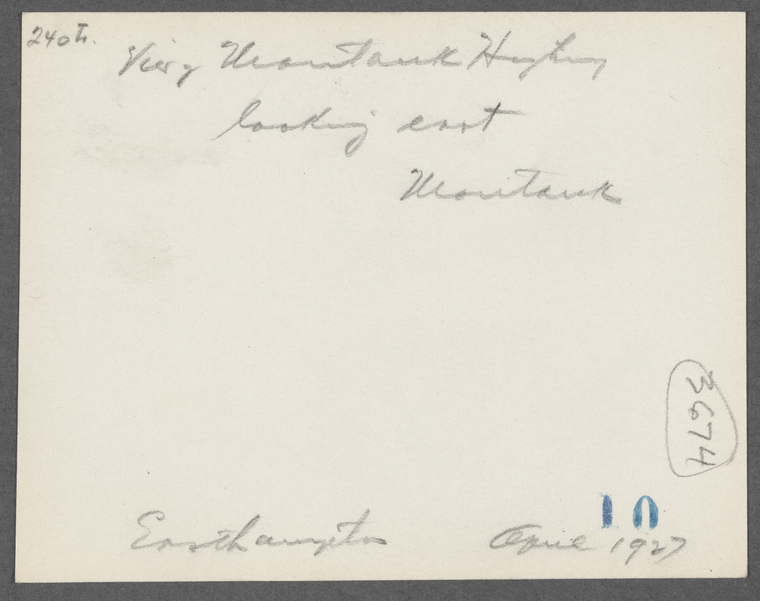 240 Tr.
View of Montauk Highway
looking east
Montauk
3674
10
Easthampton April 1927